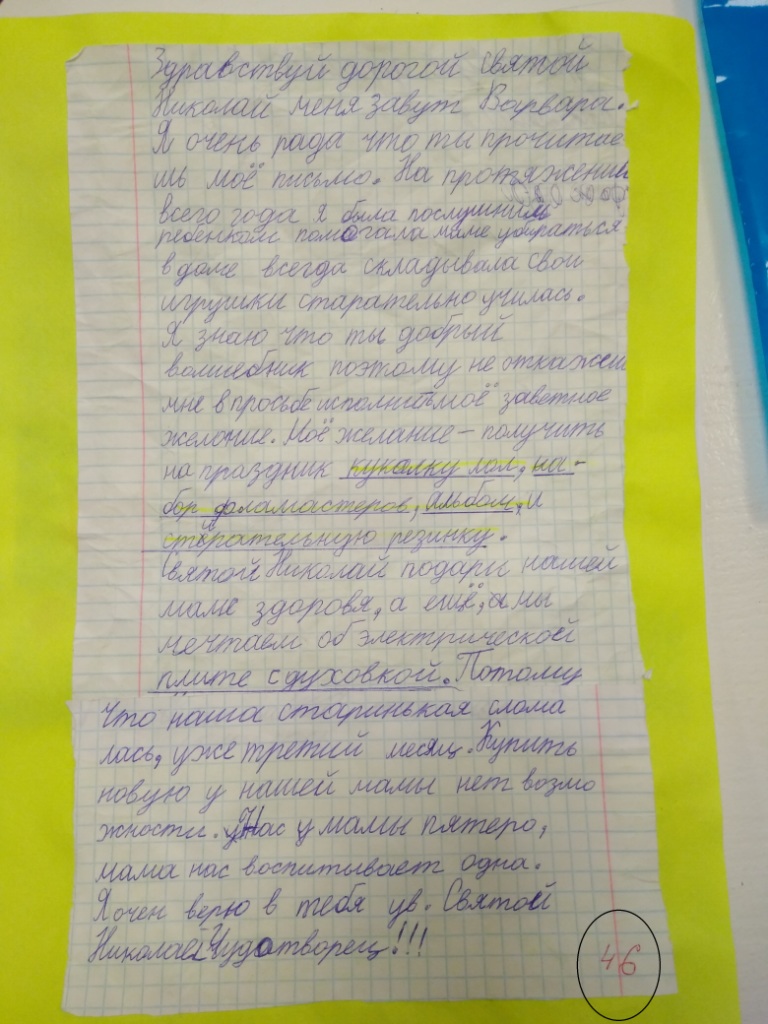 Здравствуй дорогой святой
Николай меня завут Варвара.
Я очень рада что ты прочитае
шь моё письмо. На протяжении
всего года я была послушним
ребенком помогала маме убираться
в доме всегда складывала свои
игрушки старательно училась.
Я знаю что ты добрый
волшебник поэтому не откажеш
мне в просьбе исполнить моё заветное
желание. Моё желание – получить
на праздник кукалку лол, на-
бор фламастеров, альбом, и
стирательную резинку.
Святой Николай подари нашей
маме здоровя, а ещё, а мы
мечтаем об электрической
плите с духовкой. Потому
что наша старинькая слома
лась, уже третий месяц. Купить
новую у нашей мамы нет возмо
жности. Нас у мамы пятеро,
мама нас воспитывает одна.
Я очен верю в тебя ув. Святой
Николай Чудотворец!!!
46